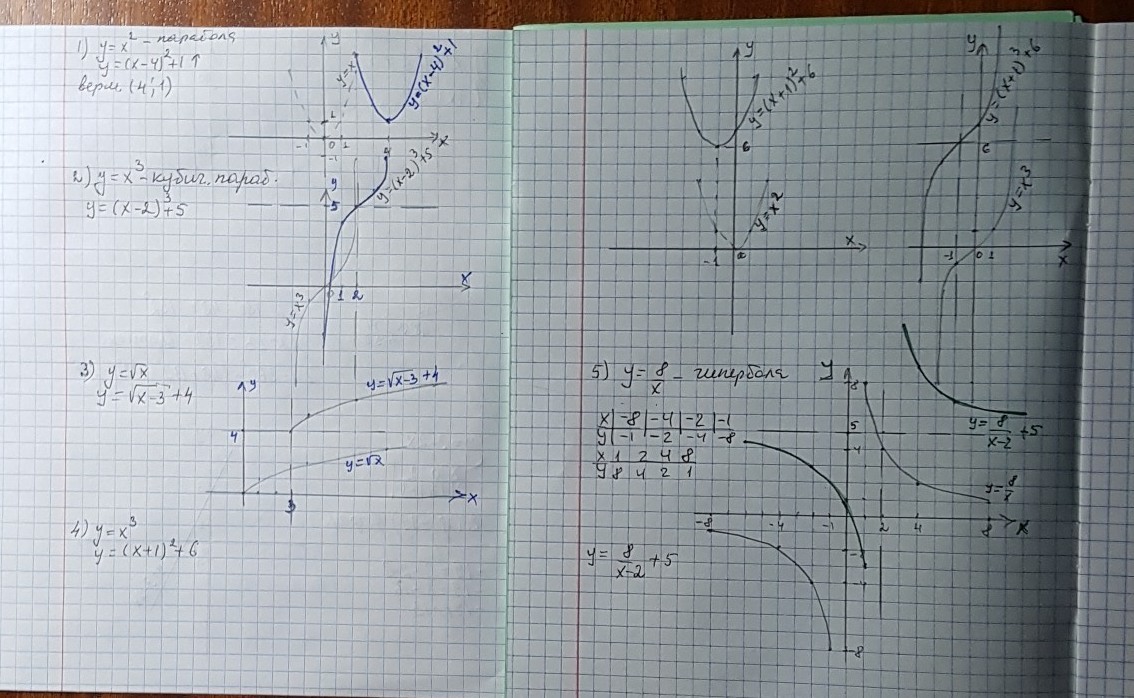 1) y = x² - парабола
y = (x-4)²+1 ↑
верш. (4; 1)
y
y=x²
y=(x-4)²+1
1
-1 0 1 4 x
-1
2) y = x³ - кубич. параб.
y = (x-2)³+5
y
5
y=(x-2)³+5
x
0 1 2
y=x³
3) y=√x
y=√x-3+4
y
y=√x-3+4
4
y=√x
x
3
4) y=x³
y=(x+1)²+6
y
y=(x+1)²+6
6
y=x²
x
-1 0
y
y=(x+1)³+6
6
y=x³
-1 0 1
x
5) y = 8/x - гипербола
x | -8 | -4 | -2 | -1
y | -1 | -2 | -4 | -8
x 1 2 4 8
y 8 4 2 1
y = 8/x-2 + 5
y
8
5
4
y = 8/x-2 + 5
y=8/x
-8 -4 -1 2 4 8 x
-4
-8